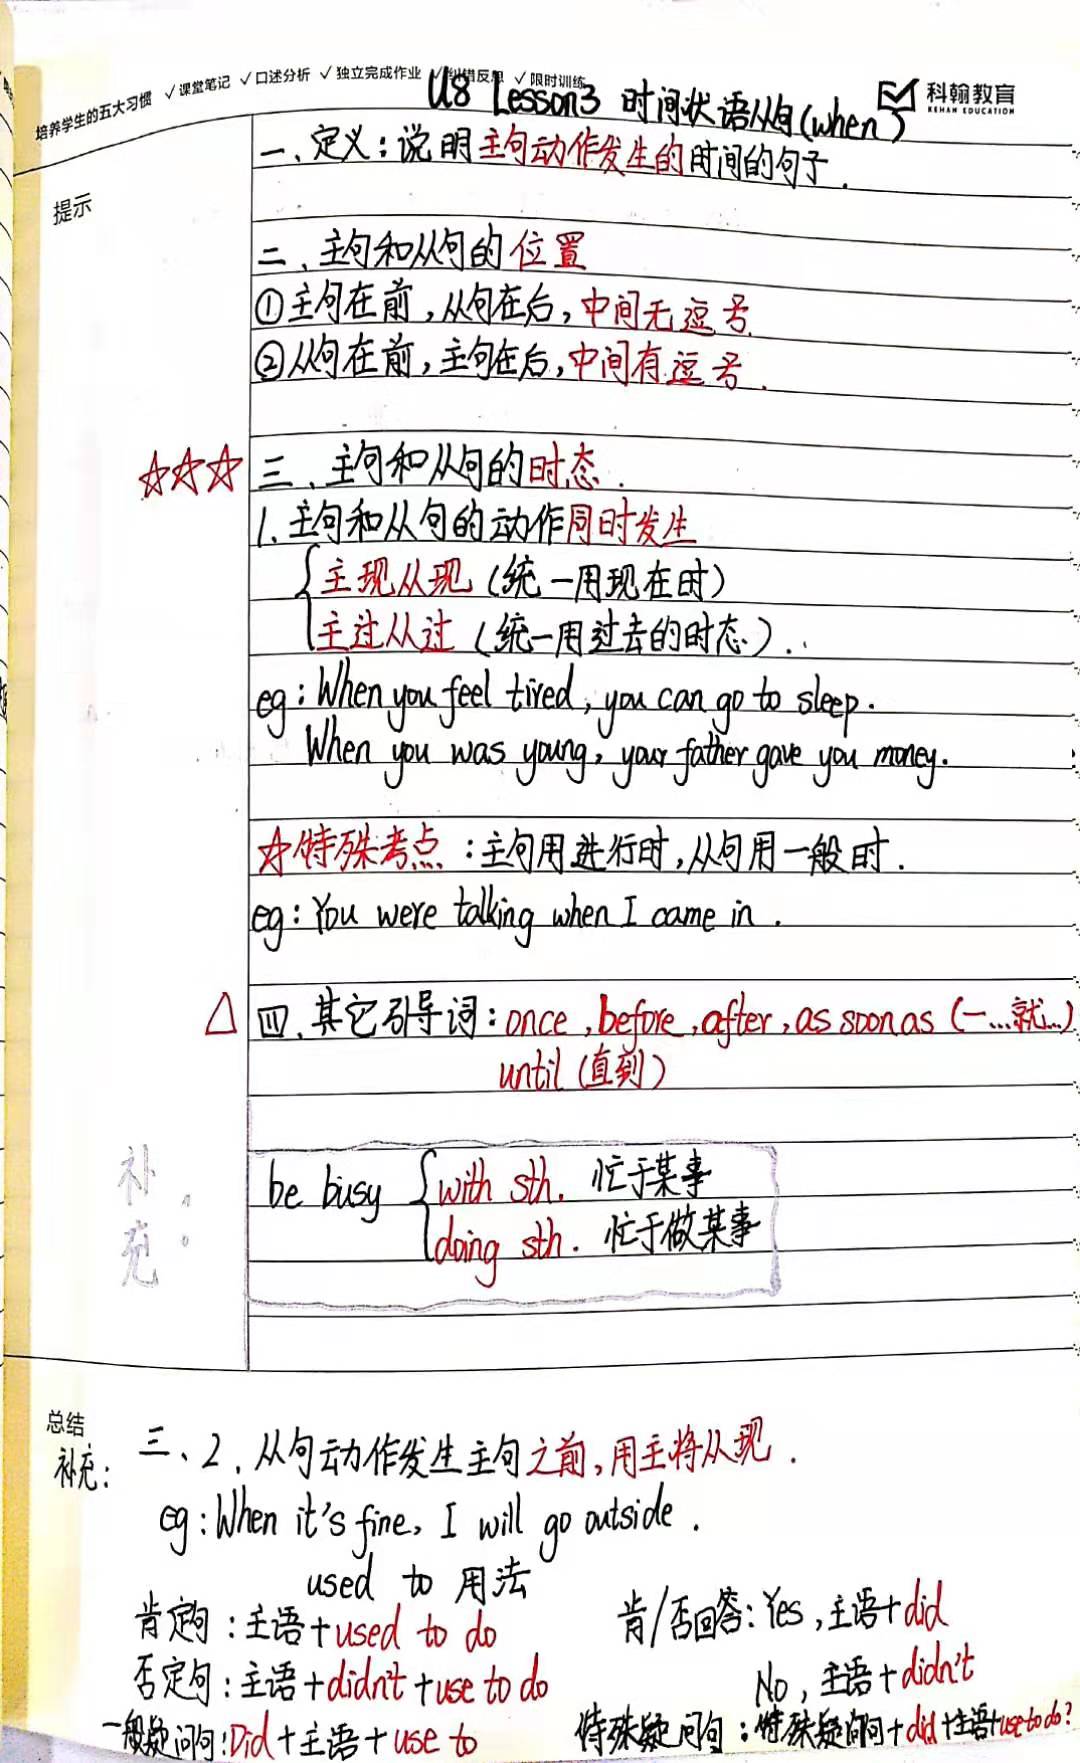 培养学生的五大习惯 ✓课堂笔记 ✓口述分析 ✓独立完成作业 ✓纠错反思 ✓限时训练
U8 Lesson3 时间状语从句(when)
科翰教育
KEHAN EDUCATION
一、定义：说明主句动作发生的时间的句子.
提示
二、主句和从句的位置
①主句在前,从句在后,中间无逗号
②从句在前,主句在后,中间有逗号.
☆☆☆ 三、主句和从句的时态.
1.主句和从句的动作同时发生
主现从现(统一用现在时)
主过从过(统一用过去的时态).
eg:When you feel tired, you can go to sleep.
When you was young, your father gave you money.
☆特殊考点:主句用进行时,从句用一般时.
eg:You were talking when I came in.
△ 四、其它引导词:once,before,after,as soon as(一...就...)
until(直到)
补充:
be busy with sth. 忙于某事
doing sth. 忙于做某事
总结
补充:
三、2.从句动作发生主句之前,用主将从现.
eg:When it's fine, I will go outside.
used to 用法
肯定句:主语+used to do
肯/否回答:Yes,主语+did
否定句:主语+didn't+use to do
No,主语+didn't
一般疑问句:Did+主语+use to
特殊疑问句:特殊疑问词+did+主语+use to do?